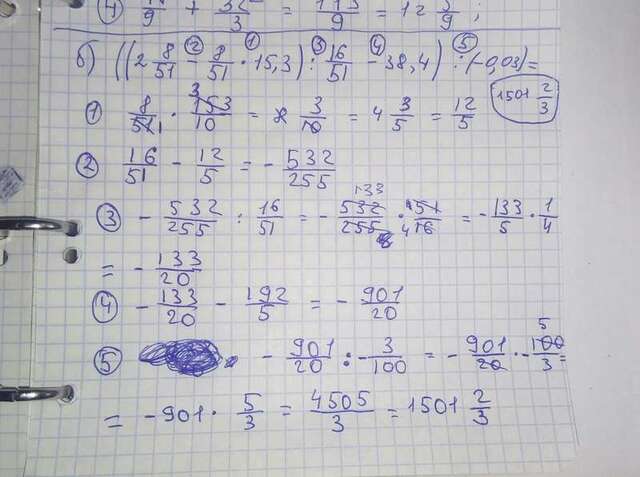 ④ /9 + 32/3 = 113/9 = 12 5/9;
б) ((2 8/51 - 8/51 · 15,3) : 16/51 - 38,4) : (-0,03) =
1501 2/3
① 8/51 · 153/10 = 8 · 3/10 = 4 3/5 = 12/5
② 16/51 - 12/5 = - 532/255
③ - 532/255 : 16/51 = - 532/255 · 51/16 = - 133/5 · 1/4
= - 133/20
④ - 133/20 - 192/5 = - 901/20
⑤ - 901/20 : - 3/100 = - 901/20 · - 100/3 =
= -901 · 5/3 = 4505/3 = 1501 2/3